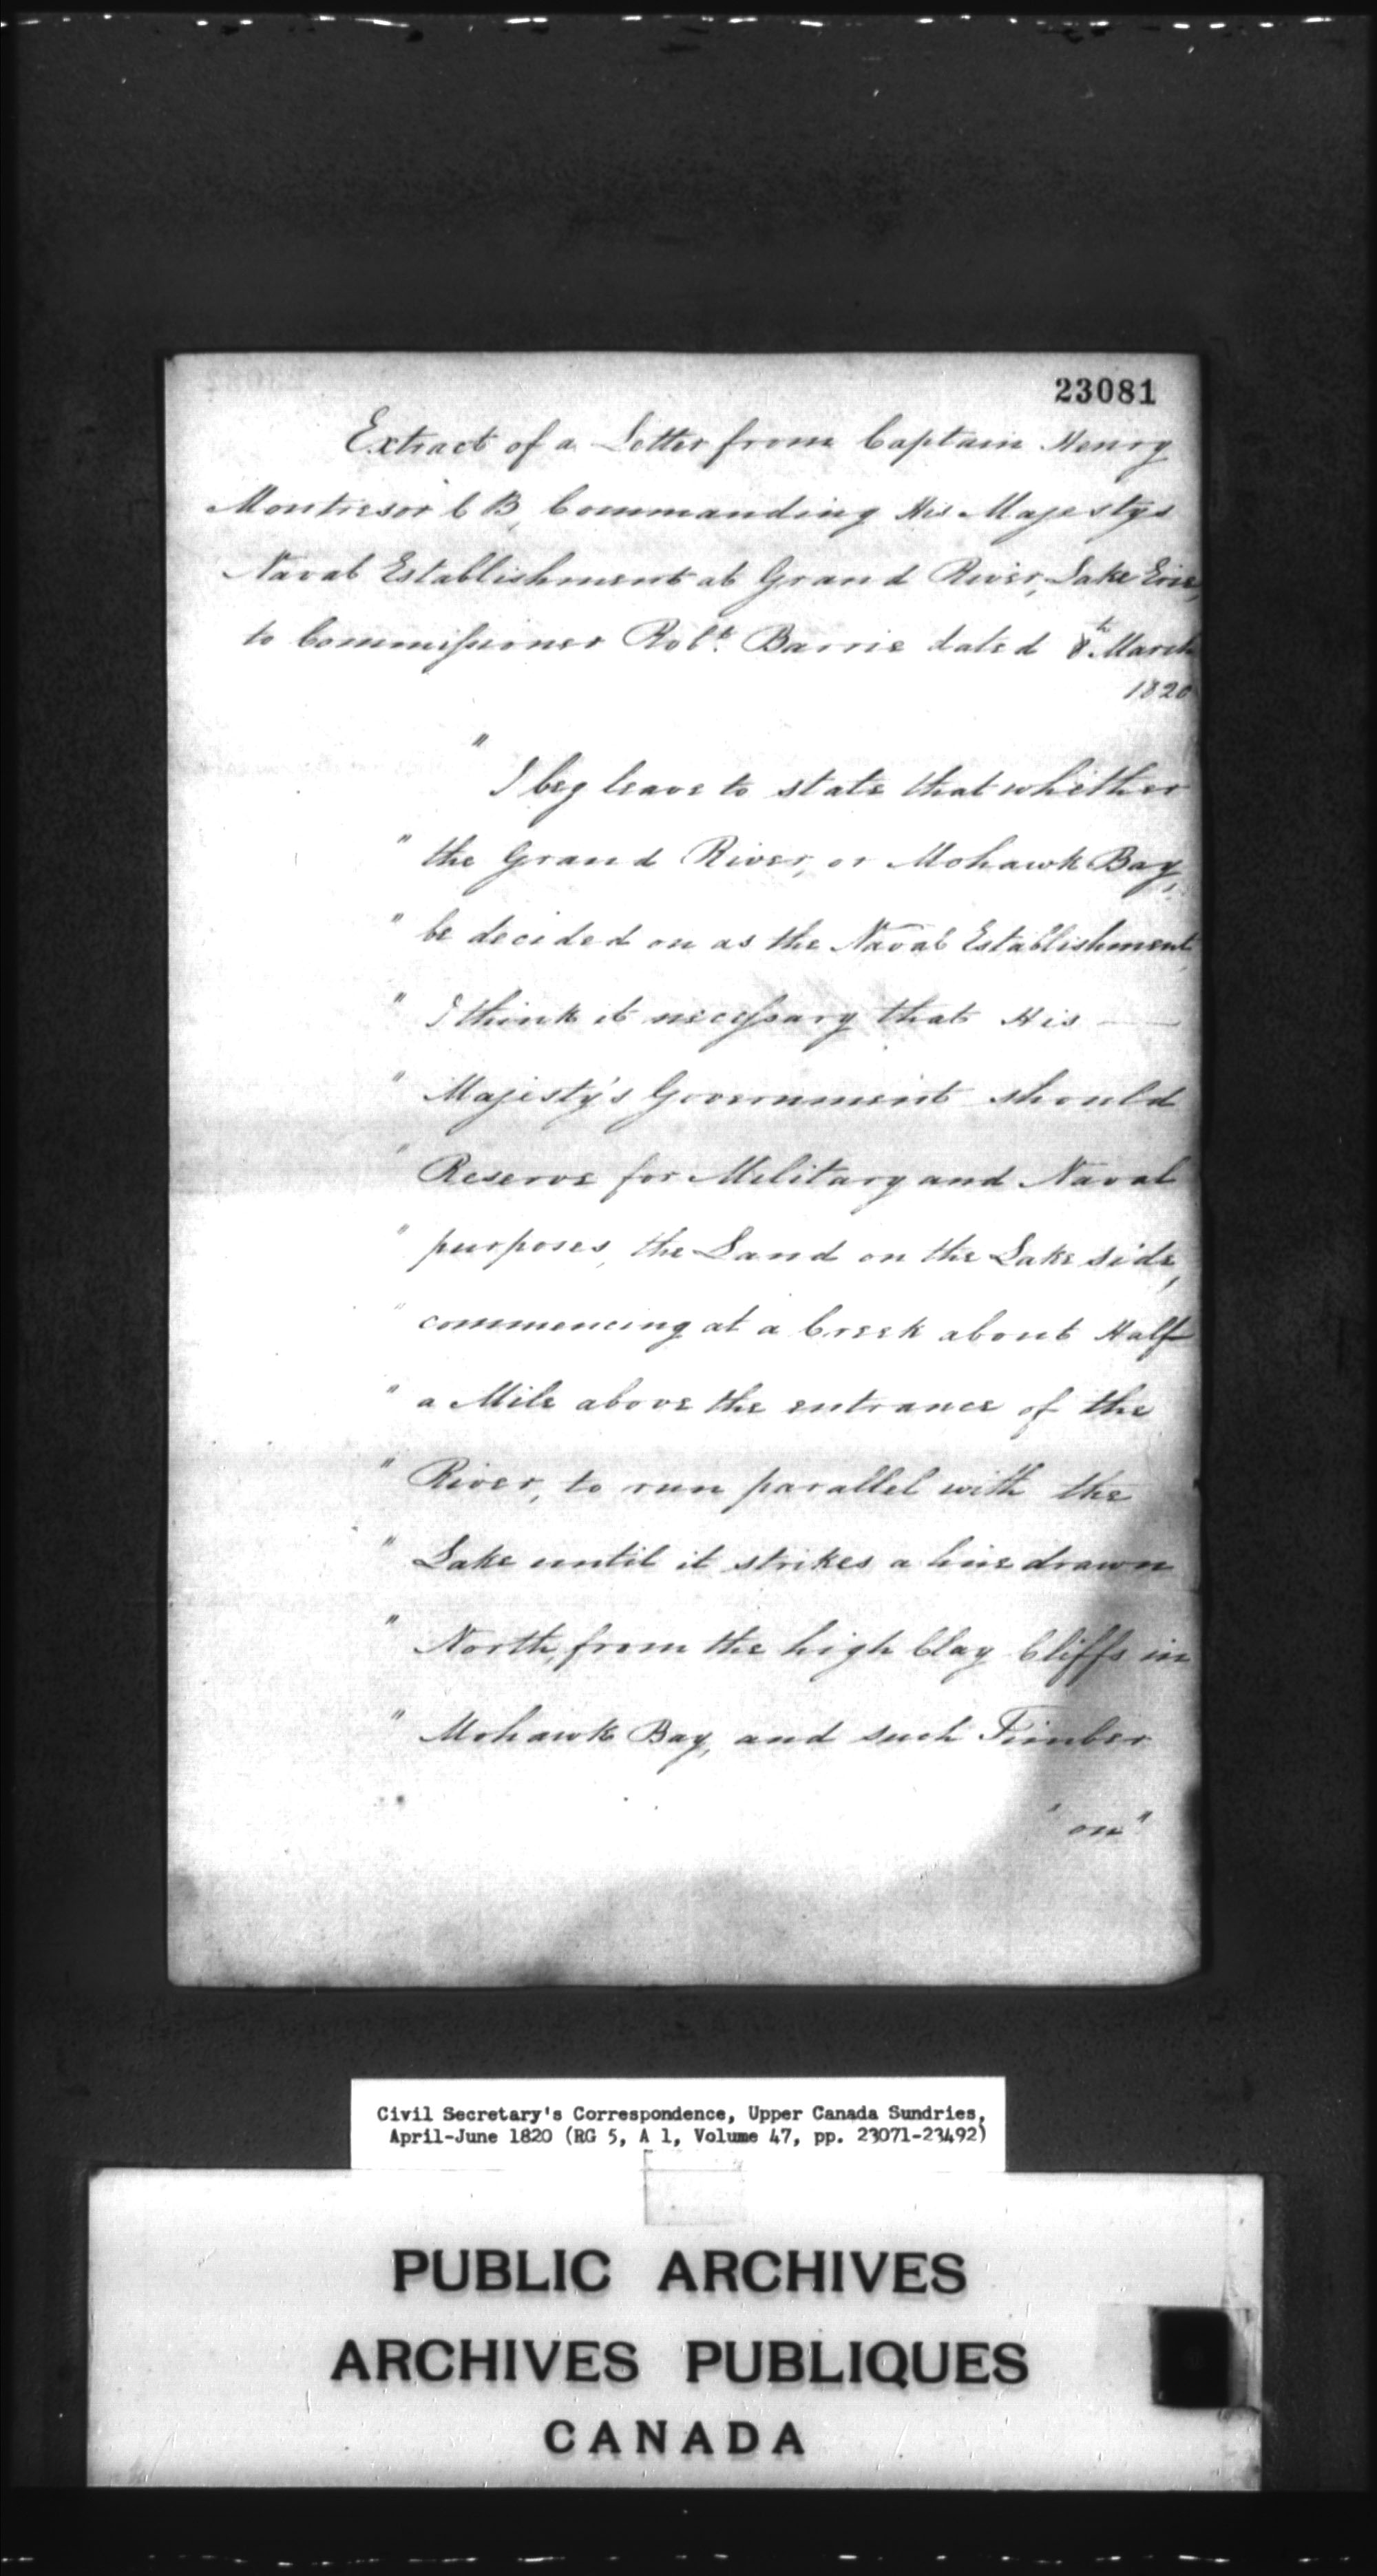 23081
Extract of a Letter from Captain Henry
Montresor C B, Commanding His Majestys
Naval Establishment at Grand River, Lake Erie,
to Commissioner Robt. Barrie dated 8th March
1820
"
I beg leave to state that whether
" the Grand River, or Mohawk Bay,
" be decided on as the Naval Establishment,
" I think it necessary that His —
" Majesty's Government should
" Reserve for Military and Naval
" purposes, the Land on the Lake side,
" commencing at a Creek about Half
" a Mile above the entrance of the
" River, to run parallel with the
" Lake until it strikes a line drawn
" North, from the high Clay Cliffs in
" Mohawk Bay, and such Timber
" on "
Civil Secretary's Correspondence, Upper Canada Sundries,
April-June 1820 (RG 5, A 1, Volume 47, pp. 23071-23492)
PUBLIC ARCHIVES
ARCHIVES PUBLIQUES
CANADA